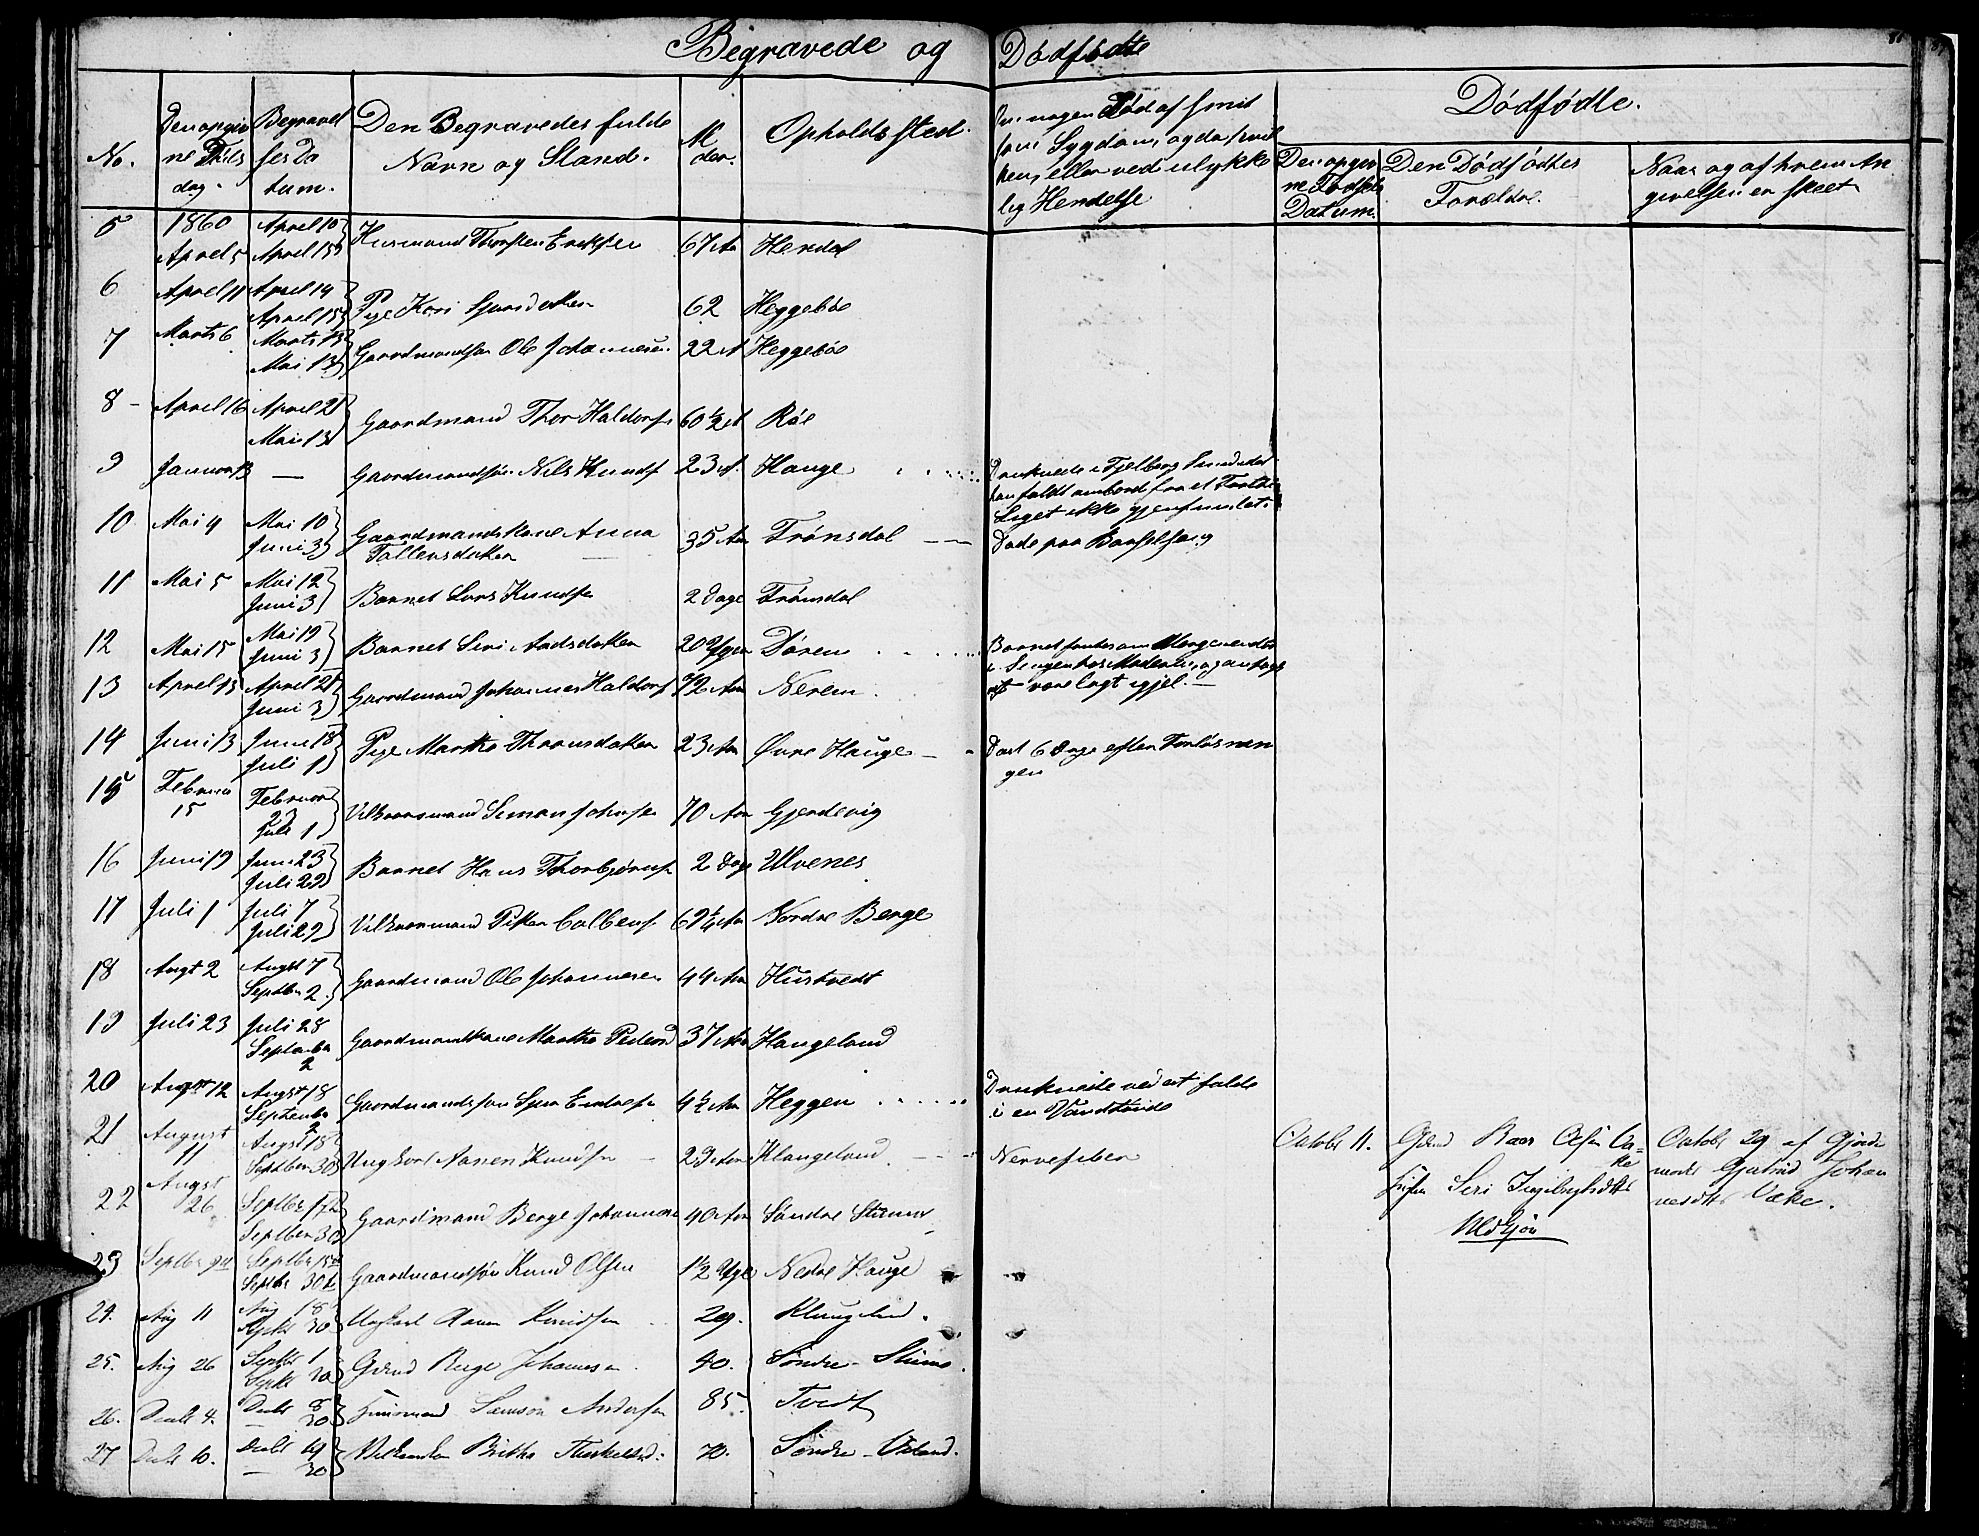 Begravede og Dødfødte
No.
Den opgiv
ne Døds
dag.
Begravel
ses Da
tum.
Den Begravedes fulde
Navn og Stand.
Al
der.
Opholdssted.
Om nogen død af smit
som Sygdom, og da hvil
ken, eller ved ulykke
lig Hendelse
Dødfødte.
Den opgiv
ne Fødsels
Datum.
Den Dødfødtes
Forældre.
Naar og af hvem An
givelsen er skeet
5 1860 April 5 April 10 April 15 Husmand Thorsten Eriksen 67 Aar Hendal
6 April 11 April 14 April 15 Pige Kari 62 Heggebøe
7 Marts 6 Marts 13 Mai 13 Gaardmandsøn Ole Johannesen 22 A Heggebøe
8 April 16 April 21 Mai 13 Gaardmand Thor Haldors. 60½ A Røe
9 Januar 13 — Gaardmandsøn Nils Knuds. 23 A. Hauge Druknede i Fjelberg Sund idet
han faldt ombord fra et
Liget ikke gjenfundet.
10 Mai 4 Mai 10 Juni 3 Gaardmandskone Anna
Tollevsdatter 35 Aar Trønsdal Døde paa Barselseng
11 Mai 5 Mai 12 Juni 3 Barnet Lars Knudsen 2 Dage Trønsdal
12 Mai 15 Mai 19 Juni 3 Barnet Siri 20 Uger Døren Barnet fandtes om Morgenen død
i Sengen hos Moderen, og antages
at være lagt igjel.
13 April 13 April 21 Juni 3 Gaardmand Johannes Haldors. 72 Aar Nerem
14 Juni 13 Juni 18 Juli 1 Pige Martha 23 Aar Øvre Hauge Død 6 Dage efter Forløsnin
gen
15 Februar 15 Februar 23 Juli 1 Vilkaarsmand Simon Johns. 70 Aar Gjerdevig
16 Juni 19 Juni 23 Juli 29 Barnet Hans Thorbjørns. 2 Dage Ulvenes
17 Juli 1 Juli 7 Juli 29 Vilkaarmand Peter Colbens. 69¼ Aar Nordre Berge
18 Augt 2 Augst 7 Septbr 2 Gaardmand Ole Johannesen 44 Aar Hustvedt
19 Juli 23 Juli 28 September 2 Gaardmandkone Martha Pedersd 37 Aar Haugeland
20 Augst 12 Augst 18 September 2 Gaardmandsøn 4½ Aar Heggen Druknede ved at falde
i en Vandtønde
21 August 11 Augst 18 Septber 30 Ungkarl Aanen Knudsen 29 Aar Klaugeland Nervefeber
October 11. Grmd Olsen
Siri Ingebrigtsdtr
October 29 af Gjorde
moder Gjertrud Johan
nesdtr Vake.
22 Augst 26 Septber 1 Septber 30 Gaardmand Berge Johannesen 40 Aar Søndre Stumo
23 Septbr 9 Septbr 15 Septbr 30 Gaardmandsøn Knud Olsen 1½ Uge Nedre Hauge
24. Aug 11 Aug 18 Septbr 30 Ungkarl Aanen Knudsen 29. Klaugeland.
25. Aug 26 Septbr 1 Septbr 30 Grmd Berge Johannesen 40. Søndre Stumo.
26. Decbr 4. Decbr 8 — 30 Husmand Samson Andersen 85. Tvedt
27 Decbr 10. Decbr 19 — 30 Britha 70. Søndre